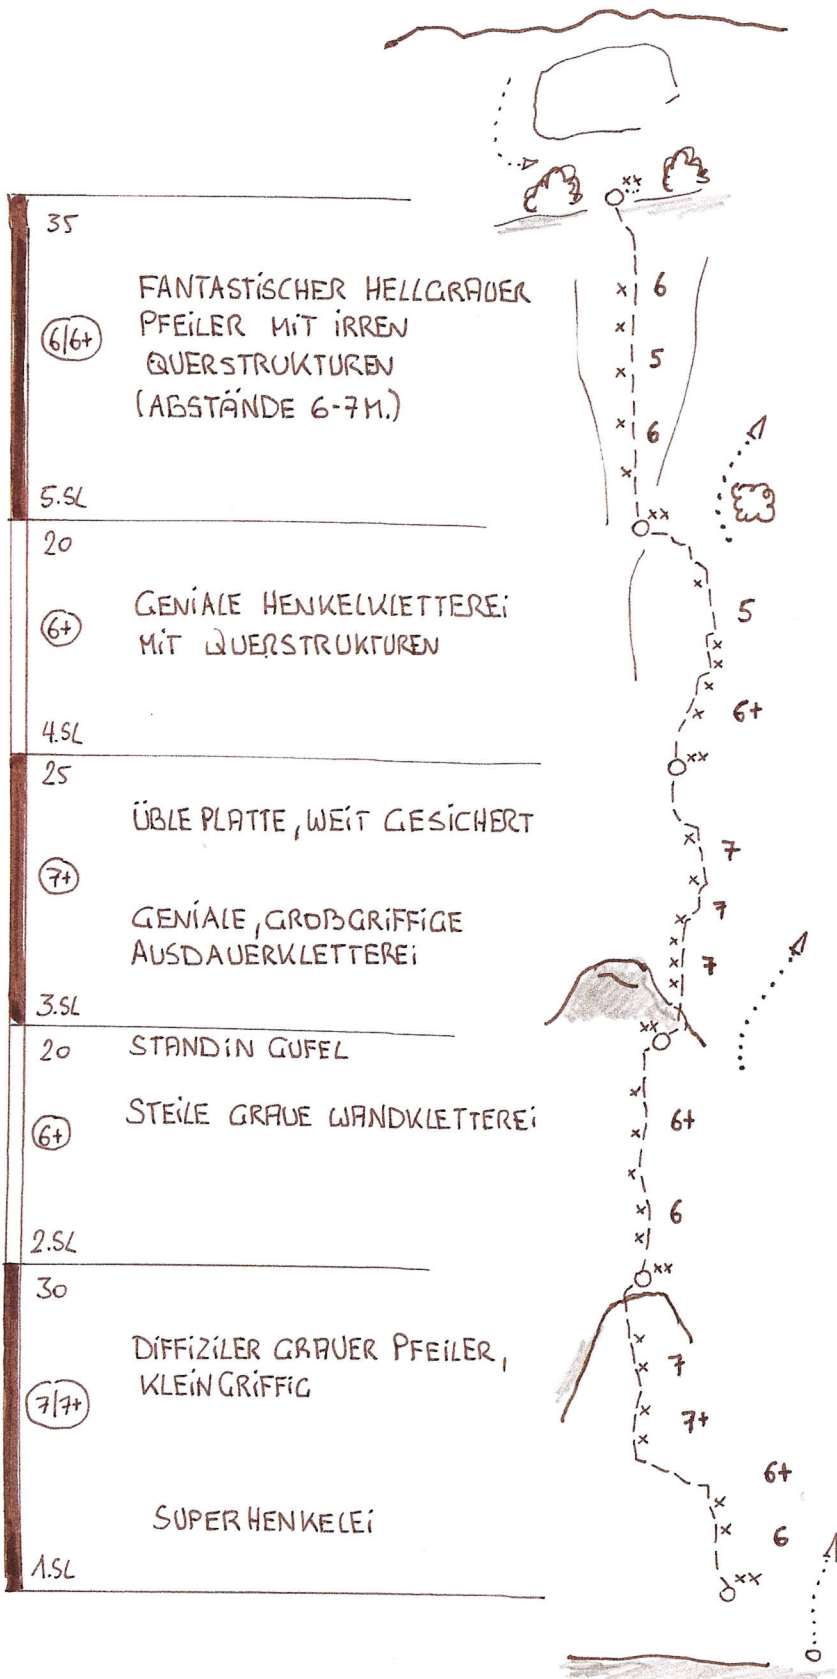 35
6/6+
FANTASTISCHER HELLGRAUER
PFEILER MIT IRREN
QUERSTRUKTUREN
(ABSTÄNDE 6-7M.)
5.SL
6
5
6
20
6+
GENIALE HENKELKLETTEREI
MIT QUERSTRUKTUREN
4.SL
5
6+
25
7+
ÜBLE PLATTE, WEIT GESICHERT
GENIALE, GROßGRIFFIGE
AUSDAUERKLETTEREI
3.SL
7
7
7
20
6+
STAND IN GUFEL
STEILE GRAUE WANDKLETTEREI
2.SL
6+
6
30
7/7+
DIFFIZILER GRAUER PFEILER,
KLEINGRIFFIG
SUPERHENKELEI
1.SL
7
7+
6+
6